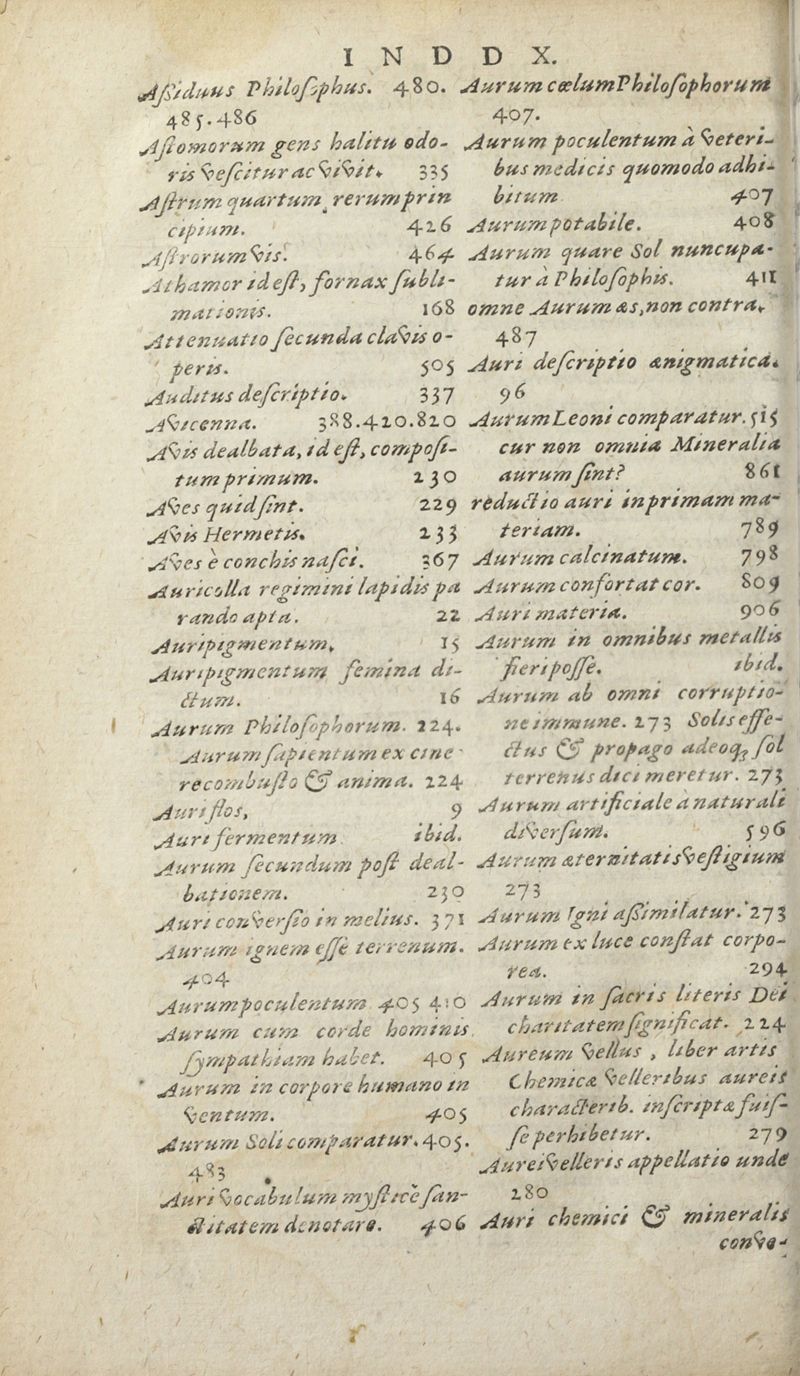 I N D D X.
Aſsiduus Philoſophus. 480.
485.486
Aſtomorum gens halitu odo-
ris veſcitur ac vivit. 335
Aſtrum quartum rerum prin
cipium. 426
Aſtrorum vis. 464
Athamor id eſt, fornax ſubli-
mationis. 168
Attenuatio ſecunda clavis o-
peris. 505
Auditus deſcriptio. 337
Avicenna. 388.420.820
Avis dealbata, id eſt, compoſi-
tum primum. 230
Aves quid ſint. 229
Avis Hermetis. 233
Aves è conchis naſci. 367
Auricolla regimini lapidis pa
rando apta. 22
Auripigmentum. 15
Auripigmentum femina di-
ctum. 16
Aurum Philoſophorum. 224.
Aurum ſapientum ex cine-
re combuſto & anima. 224
Auri flos, 9
Auri fermentum ibid.
Aurum ſecundum poſt deal-
bationem. 230
Auri converſio in melius. 371
Aurum ignem eſſe terrenum.
404
Aurum poculentum 405 410
Aurum cum corde hominis
ſympathiam habet. 405
Aurum in corpore humano in
ventum. 405
Aurum Soli comparatur. 405.
483
Auri vocabulum myſticè ſan-
ctitatem denotare. 406
Aurum cœlum Philoſophorum
407.
Aurum poculentum à veteri-
bus medicis quomodo adhi-
bitum 407
Aurum potabile. 408
Aurum quare Sol nuncupa-
tur à Philoſophis. 411
omne Aurum æs, non contra.
487
Auri deſcriptio ænigmatica.
96
Aurum Leoni comparatur. 515
cur non omnia Mineralia
aurum ſint? 861
reductio auri in primam ma-
teriam. 789
Aurum calcinatum. 798
Aurum confortat cor. 809
Auri materia. 906
Aurum in omnibus metallis
fieri poſſe. ibid.
Aurum ab omni corruptio-
ne immune. 273 Solis effe-
ctus & propago adeoq; ſol
terrenus dici meretur. 273
Aurum artificiale à naturali
diverſum. 596
Aurum æternitatis veſtigium
273
Aurum Igni aſsimilatur. 273
Aurum ex luce conſtat corpo-
rea. 294
Aurum in ſacris literis Dei
charitatem ſignificat. 224
Aureum vellus, liber artis
Chemicæ velleribus aureis
characterib. inſcriptæ fuiſ-
ſe perhibetur. 279
Aurei velleris appellatio unde
280
Auri chemici & mineralis
conve-